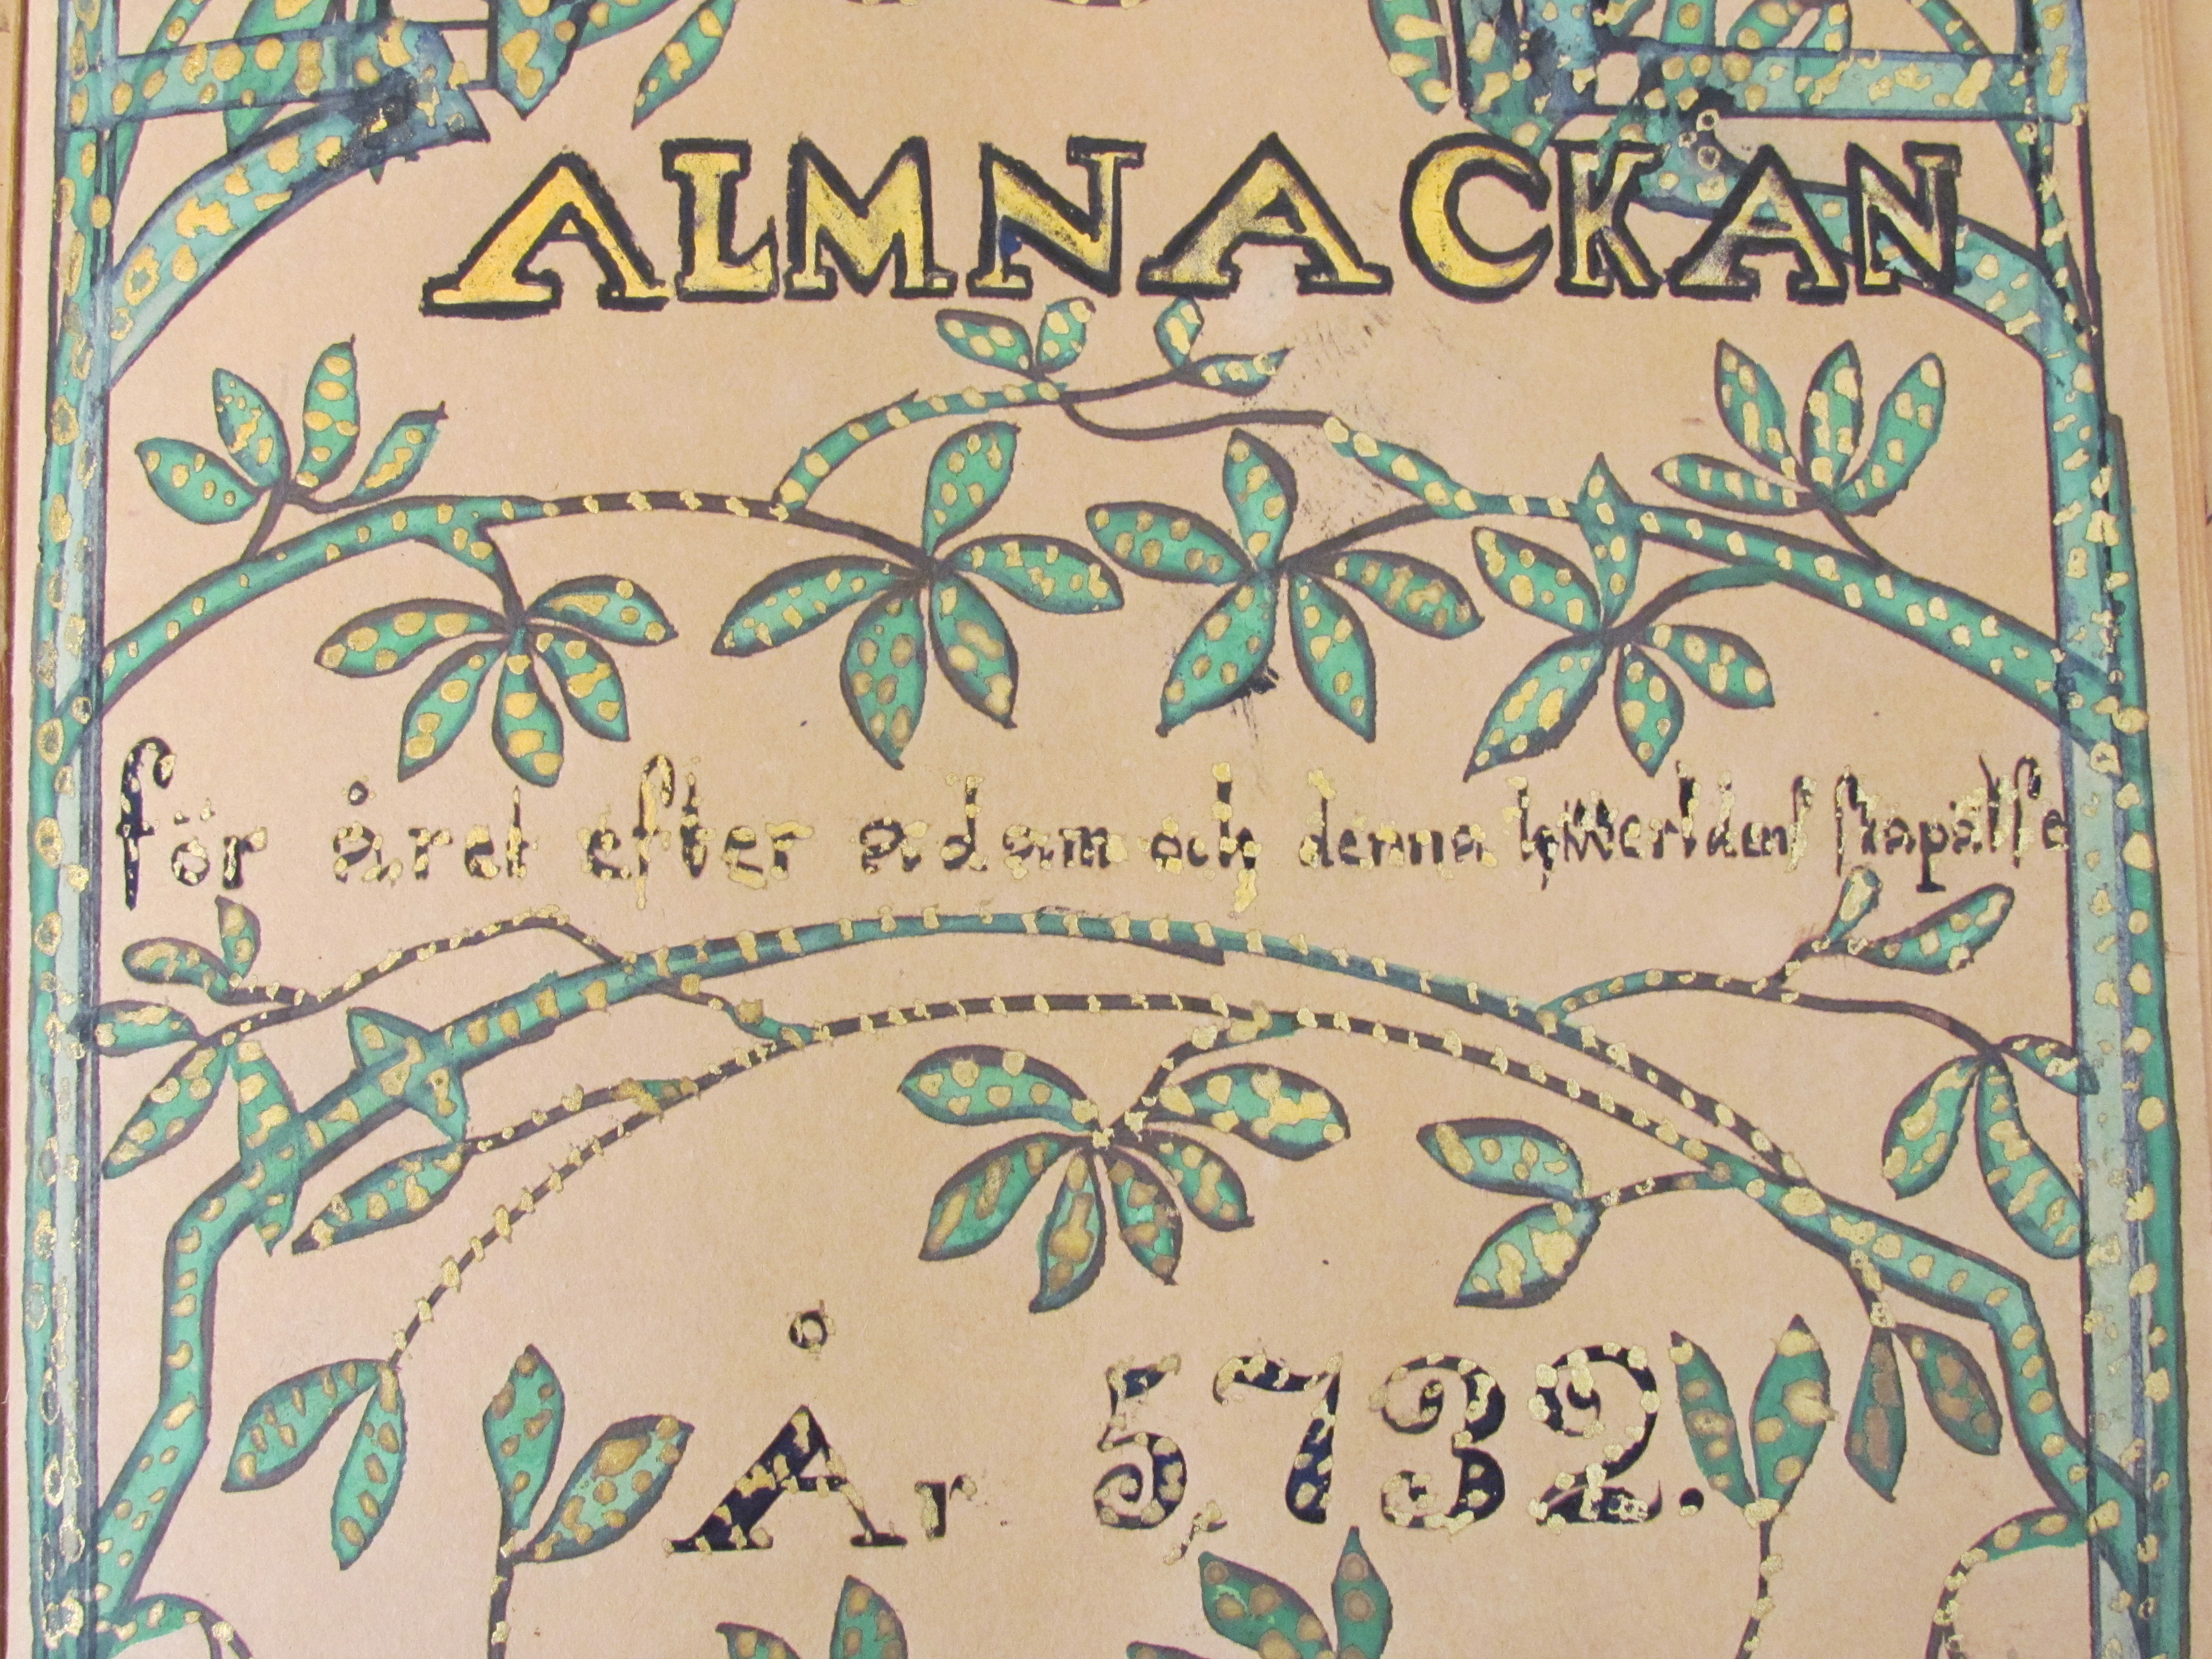 ALMNACKAN
för året efter adam och denna werldens skapalse
År 5,732.